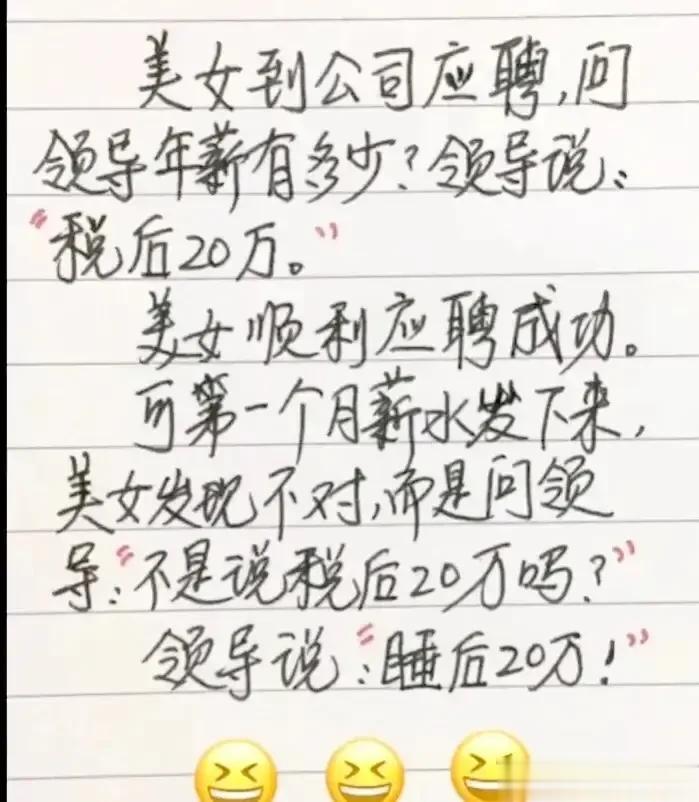 美女到公司应聘,问
领导年薪有多少?领导说:
“税后20万。”
美女顺利应聘成功。
可第一个月薪水发下来,
美女发现不对,而是问领
导:“不是说税后20万吗?”
领导说“:睡后20万!”